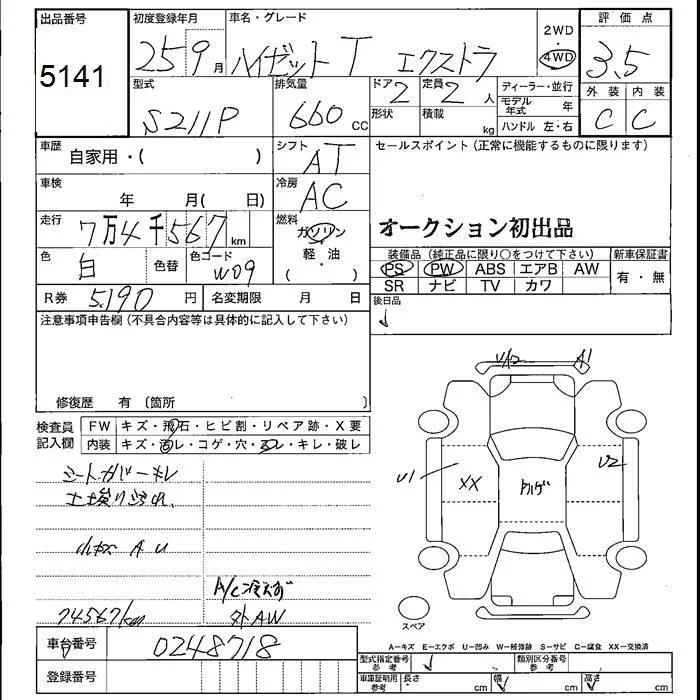 出品番号
5141
初度登録年月
25 9 月
車名・グレード
ハイゼットT エクストラ
2WD
4WD
評価点
3.5
外装 内装
C C
型式
S211P
排気量
660 CC
ドア 2
形状
定員 2 人
積載 kg
ディーラー・並行
モデル年式 年
ハンドル 左・右
車歴
自家用・( )
シフト
AT
セールスポイント(正常に機能するものに限ります)
オークション初出品
車検
年 月( 日)
冷房
AC
走行
7万4千567 km
燃料
ガソリン
軽・油
( )
色
白
色替
色コード
W09
装備品(純正品に限り○をつけて下さい)
PS PW ABS エアB AW
SR ナビ TV カワ
新車保証書
有・無
R券 5,190 円
名変期限 月 日
後日品
注意事項申告欄(不具合内容等は具体的に記入して下さい)
修復歴 有 〔箇所 〕
検査員
記入欄
FW キズ・飛石・ヒビ割・リペア跡・X要
内装 キズ・汚レ・コゲ・穴・スレ・キレ・破レ
シートカバーキレ
A U
A/C冷えず
74567km
外AW
A1
U1
XX
U2
スペア
車台番号
0248718
登録番号
A−キズ E−エクボ U−凹み W−補修跡 S−サビ C−腐食 XX−交換済
型式指定番号
参考
類別区分番号
参考
車庫証明用
参考
長さ cm 幅 cm 高さ cm